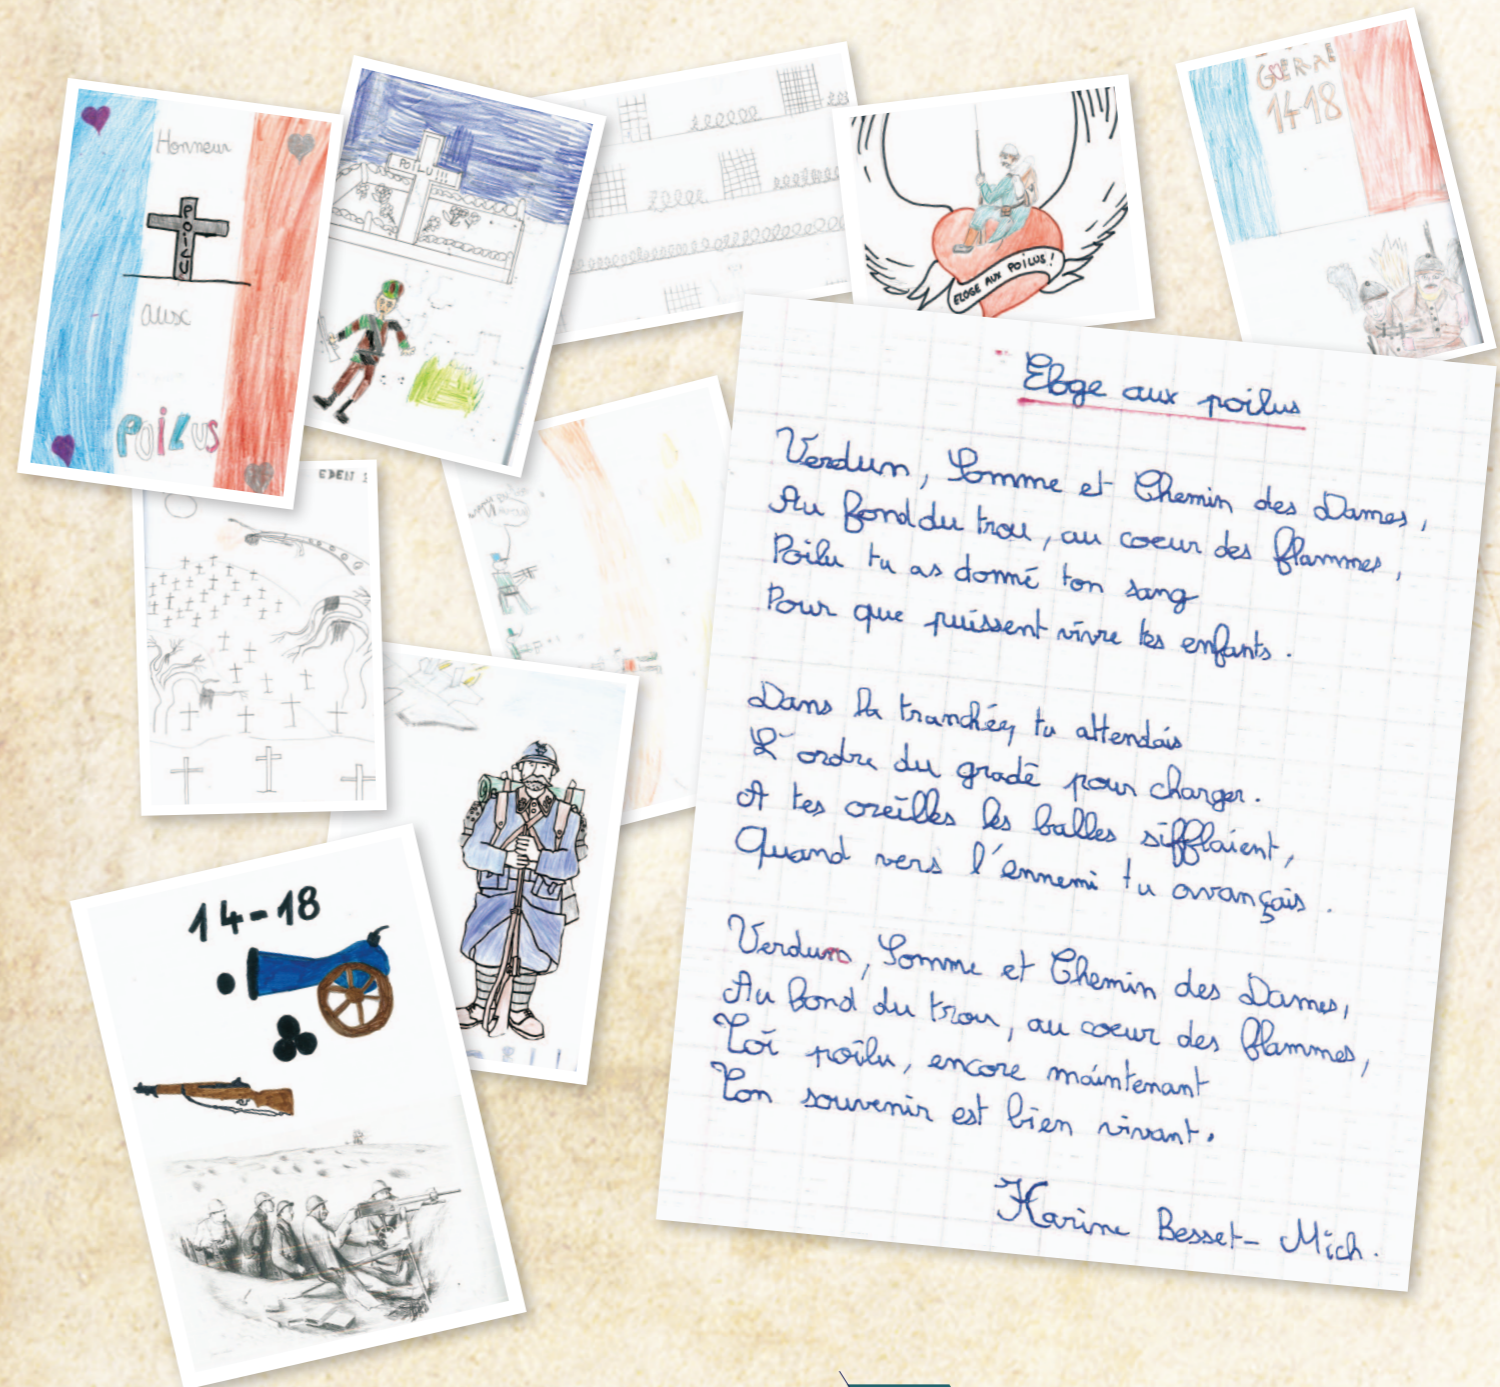 Honneur
POILU
aux
POILUS
POILU!!!
ELOGE AUX POILUS!
GUERRE
14-18
EDEN
14-18
Eloge aux poilus
Verdun, Somme et Chemin des Dames,
Au fond du trou, au coeur des flammes,
Poilu tu as donné ton sang
Pour que puissent vivre tes enfants.
Dans la tranchée, tu attendais
L'ordre du gradé pour charger.
A tes oreilles les balles sifflaient,
Quand vers l'ennemi tu avançais.
Verdun, Somme et Chemin des Dames,
Au fond du trou, au coeur des flammes,
Toi poilu, encore maintenant
Ton souvenir est bien vivant.
Karine Besset-Mich.